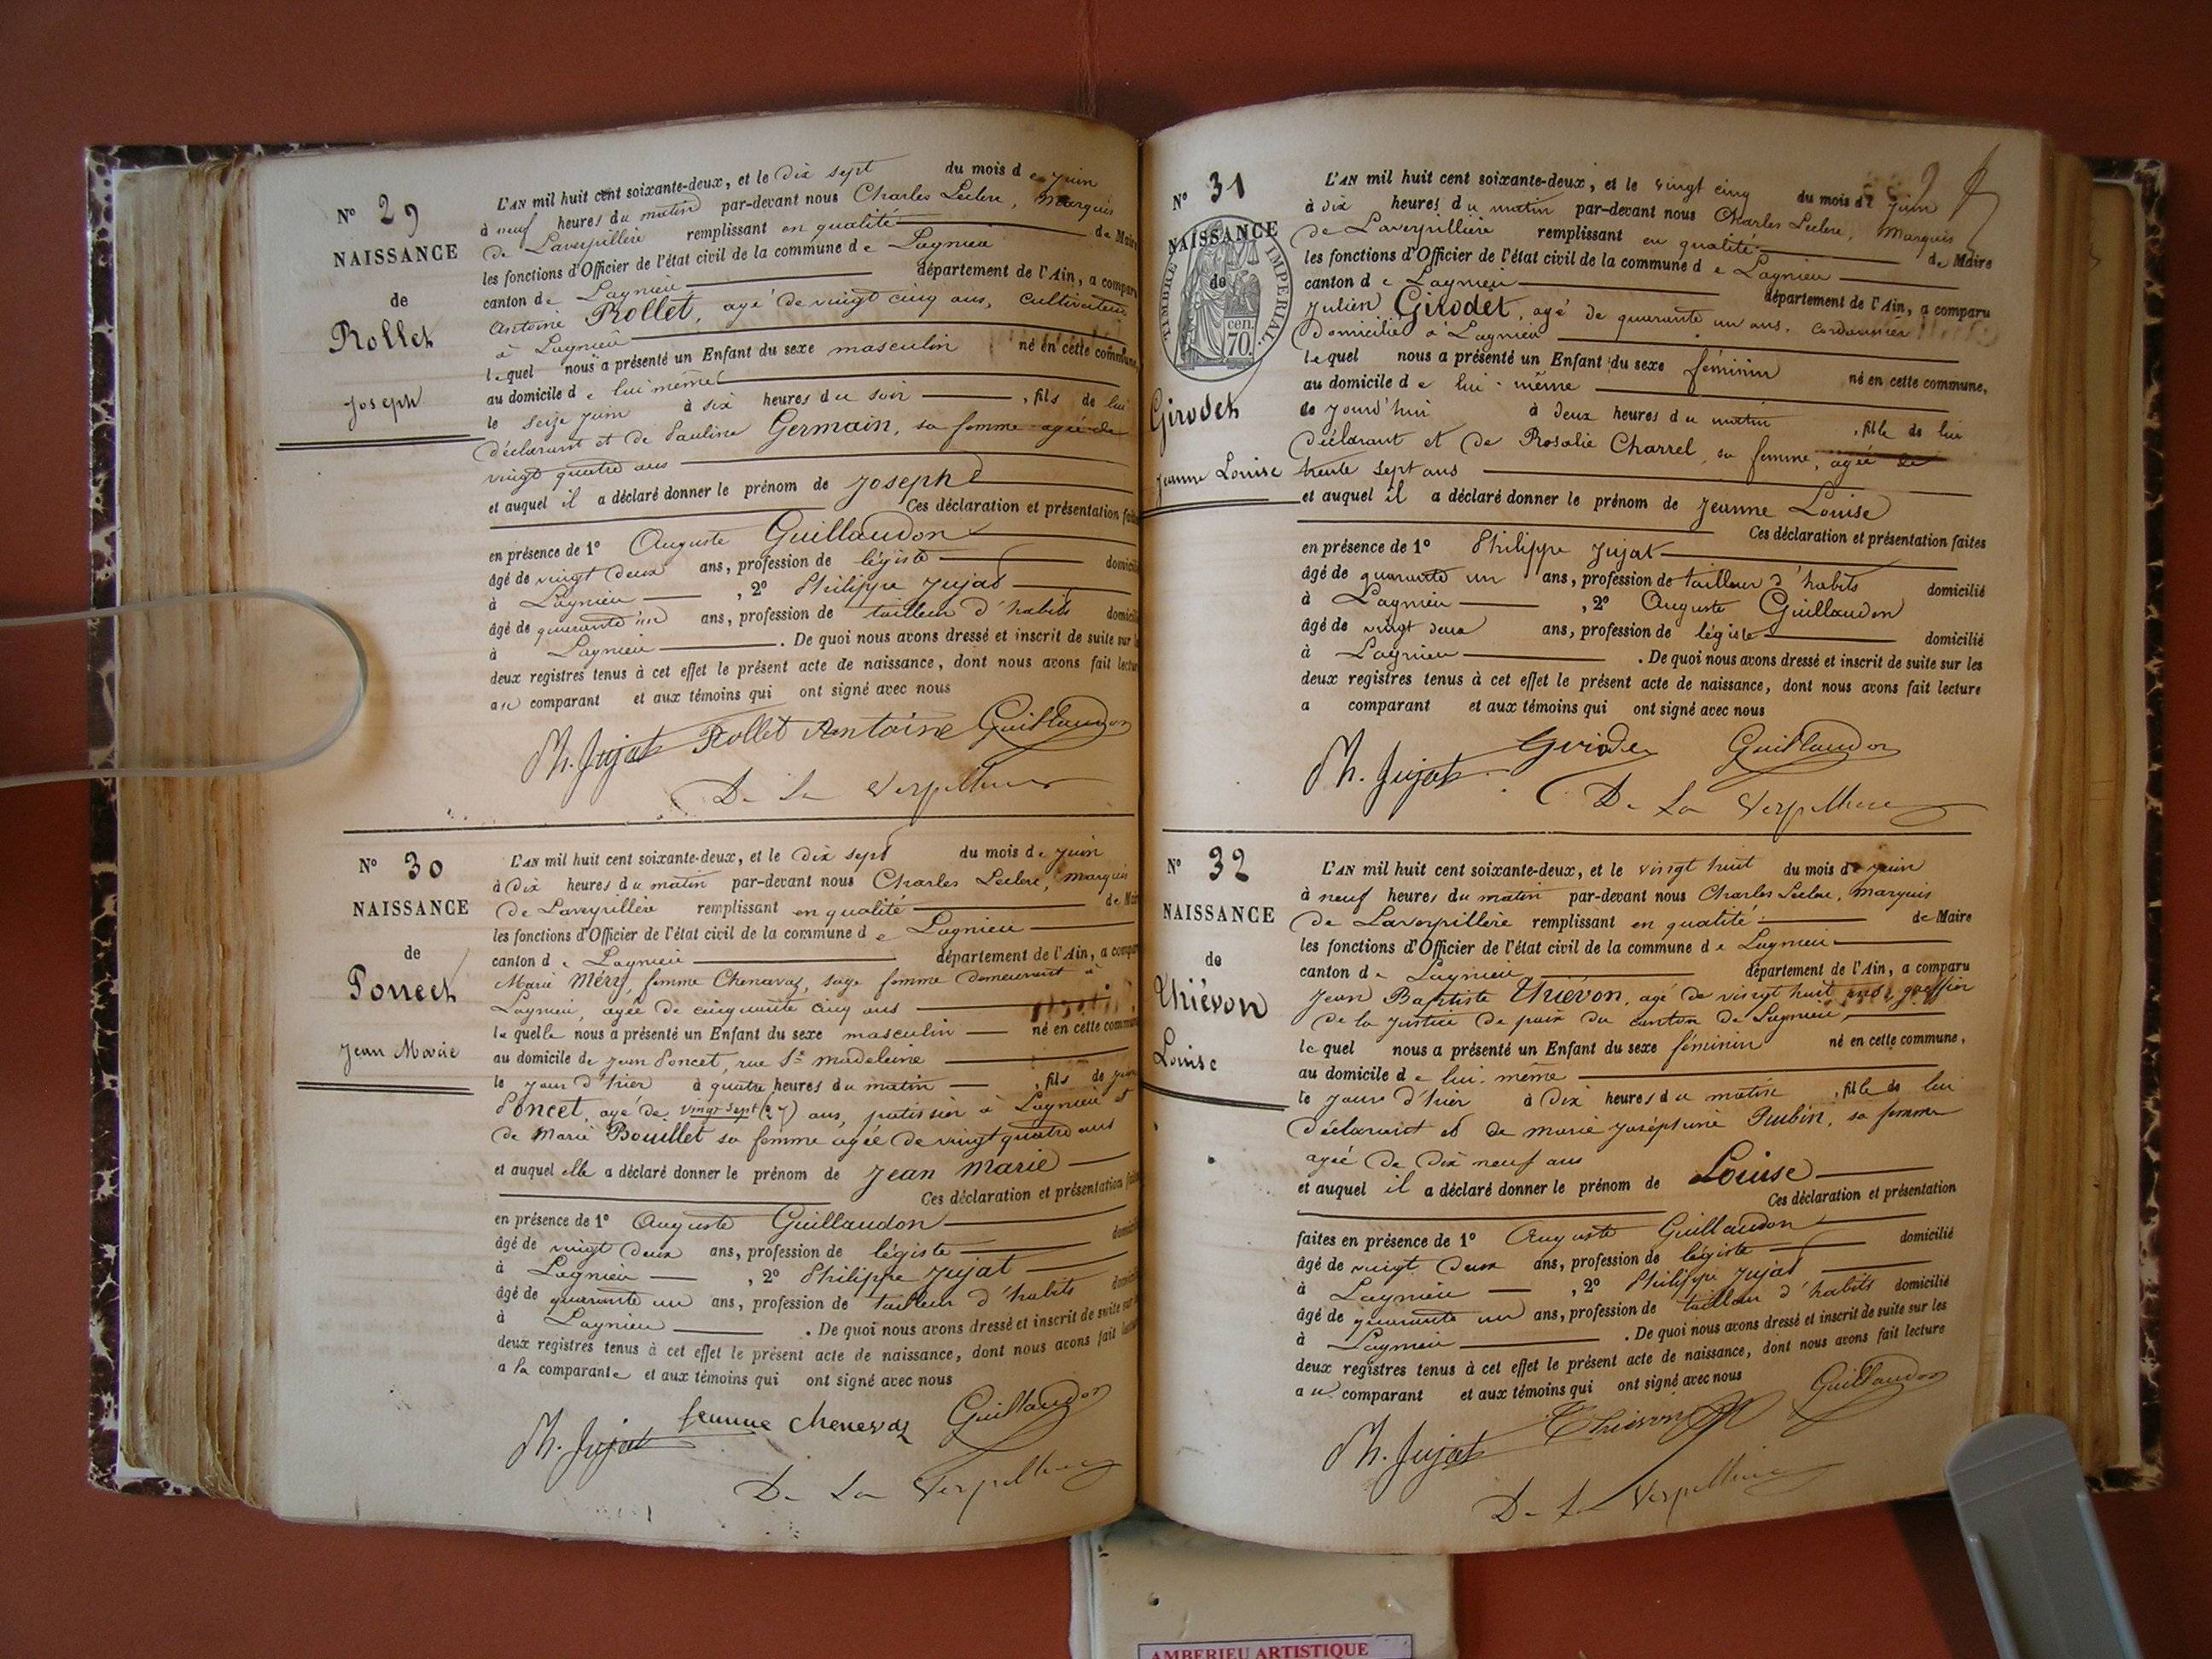 N° 29
NAISSANCE
de
Rollet
Joseph
L'AN mil huit cent soixante-deux, et le dix sept du mois de Juin
à neuf heures du matin par-devant nous Charles Leclerc, Marquis
de Laverpillière remplissant en qualité de Maire
les fonctions d'Officier de l'état civil de la commune de Lagnieu
canton de Lagnieu département de l'Ain, a comparu
Antoine Rollet, agé de vingt cinq ans, cultivateur
à Lagnieu
lequel nous a présenté un Enfant du sexe masculin né en cette commune,
au domicile de lui même
le seize juin à six heures du soir , fils de lui
déclarant et de Pauline Germain, sa femme agée de
vingt quatre ans
et auquel il a déclaré donner le prénom de Joseph
Ces déclaration et présentation faites
en présence de 1° Auguste Guillaudon
âgé de vingt deux ans, profession de légiste domicilié
à Lagnieu , 2° Philippe Jujat
âgé de quarante un ans, profession de tailleur d'habits domicilié
à Lagnieu . De quoi nous avons dressé et inscrit de suite sur les
deux registres tenus à cet effet le présent acte de naissance, dont nous avons fait lecture
au comparant et aux témoins qui ont signé avec nous
Ph. Jujat Rollet Antoine Guillaudon
De La Verpillière
N° 30
NAISSANCE
de
Poncet
Jean Marie
L'AN mil huit cent soixante-deux, et le dix sept du mois de Juin
à dix heures du matin par-devant nous Charles Leclerc, Marquis
de Laverpillière remplissant en qualité de Maire
les fonctions d'Officier de l'état civil de la commune de Lagnieu
canton de Lagnieu département de l'Ain, a comparu
Marie Méry, femme Chenavaz, sage femme demeurant à
Lagnieu, agée de cinquante cinq ans
laquelle nous a présenté un Enfant du sexe masculin né en cette commune
au domicile de Jean Poncet, rue Ste Madeleine
le jour d'hier à quatre heures du matin , fils de Jean
Poncet, agé de vingt sept (27) ans, patissier à Lagnieu et
de Marie Bouillet sa femme agée de vingt quatre ans
et auquel elle a déclaré donner le prénom de Jean Marie
Ces déclaration et présentation faites
en présence de 1° Auguste Guillaudon
âgé de vingt deux ans, profession de légiste domicilié
à Lagnieu , 2° Philippe Jujat
âgé de quarante un ans, profession de tailleur d'habits domicilié
à Lagnieu . De quoi nous avons dressé et inscrit de suite sur les
deux registres tenus à cet effet le présent acte de naissance, dont nous avons fait lecture
a la comparante et aux témoins qui ont signé avec nous
Ph. Jujat femme chenevaz Guillaudon
De La Verpillière
N° 31
NAISSANCE
de
TIMBRE IMPERIAL.
70 cen.
Girodet
Jeanne Louise
L'AN mil huit cent soixante-deux, et le vingt cinq du mois de Juin
à dix heures du matin par-devant nous Charles Leclerc, Marquis
de Laverpillière remplissant en qualité de Maire
les fonctions d'Officier de l'état civil de la commune de Lagnieu
canton de Lagnieu département de l'Ain, a comparu
Julien Girodet, agé de quarante un ans, cordonnier
Domicilié à Lagnieu
lequel nous a présenté un Enfant du sexe féminin né en cette commune,
au domicile de lui-même
ce jourd'hui à deux heures du matin , fille de lui
déclarant et de Rosalie Charrel, sa femme, agée de
trente sept ans
et auquel il a déclaré donner le prénom de Jeanne Louise
Ces déclaration et présentation faites
en présence de 1° Philippe Jujat
âgé de quarante un ans, profession de tailleur d'habits domicilié
à Lagnieu , 2° Auguste Guillaudon
âgé de vingt deux ans, profession de légiste domicilié
à Lagnieu . De quoi nous avons dressé et inscrit de suite sur les
deux registres tenus à cet effet le présent acte de naissance, dont nous avons fait lecture
a comparant et aux témoins qui ont signé avec nous
Ph. Jujat Girodet Guillaudon
De La Verpillière
N° 32
NAISSANCE
de
Thiévon
Louise
L'AN mil huit cent soixante-deux, et le vingt huit du mois de Juin
à neuf heures du matin par-devant nous Charles Leclerc, Marquis
de Laverpillière remplissant en qualité de Maire
les fonctions d'Officier de l'état civil de la commune de Lagnieu
canton de Lagnieu département de l'Ain, a comparu
Jean Baptiste Thiévon, agé de vingt huit ans, greffier
de la justice de paix du canton de Lagnieu,
lequel nous a présenté un Enfant du sexe féminin né en cette commune,
au domicile de lui-même
le jour d'hier à dix heures du matin , fille de lui
déclarant et de Marie Joséphine Rubin, sa femme
agée de dix neuf ans
et auquel il a déclaré donner le prénom de Louise
Ces déclaration et présentation
faites en présence de 1° Auguste Guillaudon
âgé de vingt deux ans, profession de légiste domicilié
à Lagnieu , 2° Philippe Jujat
âgé de quarante un ans, profession de tailleur d'habits domicilié
à Lagnieu . De quoi nous avons dressé et inscrit de suite sur les
deux registres tenus à cet effet le présent acte de naissance, dont nous avons fait lecture
au comparant et aux témoins qui ont signé avec nous
Ph. Jujat Thiévon Guillaudon
De La Verpillière
AMBERIEU ARTISTIQUE